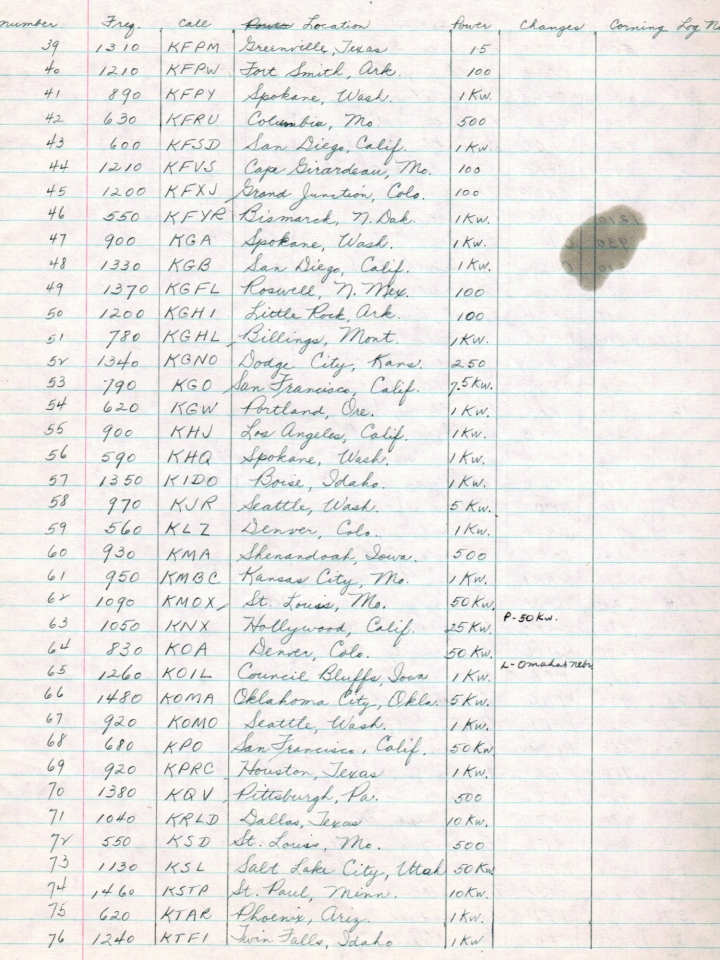 number Freq. Call Location Power Changes Corning Log N
39 1310 KFPM Greenville, Texas 15
40 1210 KFPW Fort Smith, Ark. 100
41 890 KFPY Spokane, Wash. 1 Kw.
42 630 KFRU Columbia, Mo. 500
43 600 KFSD San Diego, Calif. 1 Kw.
44 1210 KFVS Cape Girardeau, Mo. 100
45 1200 KFXJ Grand Junction, Colo. 100
46 550 KFYR Bismarck, N. Dak. 1 Kw.
47 900 KGA Spokane, Wash. 1 Kw.
48 1330 KGB San Diego, Calif. 1 Kw.
49 1370 KGFL Roswell, N. Mex. 100
50 1200 KGHI Little Rock, Ark. 100
51 780 KGHL Billings, Mont. 1 Kw.
52 1340 KGNO Dodge City, Kans. 250
53 790 KGO San Francisco, Calif. 7.5 Kw.
54 620 KGW Portland, Ore. 1 Kw.
55 900 KHJ Los Angeles, Calif. 1 Kw.
56 590 KHQ Spokane, Wash. 1 Kw.
57 1350 KIDO Boise, Idaho. 1 Kw.
58 970 KJR Seattle, Wash. 5 Kw.
59 560 KLZ Denver, Colo. 1 Kw.
60 930 KMA Shenandoah, Iowa. 500
61 950 KMBC Kansas City, Mo. 1 Kw.
62 1090 KMOX St. Louis, Mo. 50 Kw.
63 1050 KNX Hollywood, Calif. 25 Kw. P-50 Kw.
64 830 KOA Denver, Colo. 50 Kw.
65 1260 KOIL Council Bluffs, Iowa 1 Kw. L-Omaha, Nebr
66 1480 KOMA Oklahoma City, Okla. 5 Kw.
67 920 KOMO Seattle, Wash. 1 Kw.
68 680 KPO San Francisco, Calif. 50 Kw
69 920 KPRC Houston, Texas 1 Kw.
70 1380 KQV Pittsburgh, Pa. 500
71 1040 KRLD Dallas, Texas 10 Kw.
72 550 KSD St. Louis, Mo. 500
73 1130 KSL Salt Lake City, Utah 50 Kw
74 1460 KSTP St. Paul, Minn. 10 Kw.
75 620 KTAR Phoenix, Ariz. 1 Kw.
76 1240 KTFI Twin Falls, Idaho 1 Kw